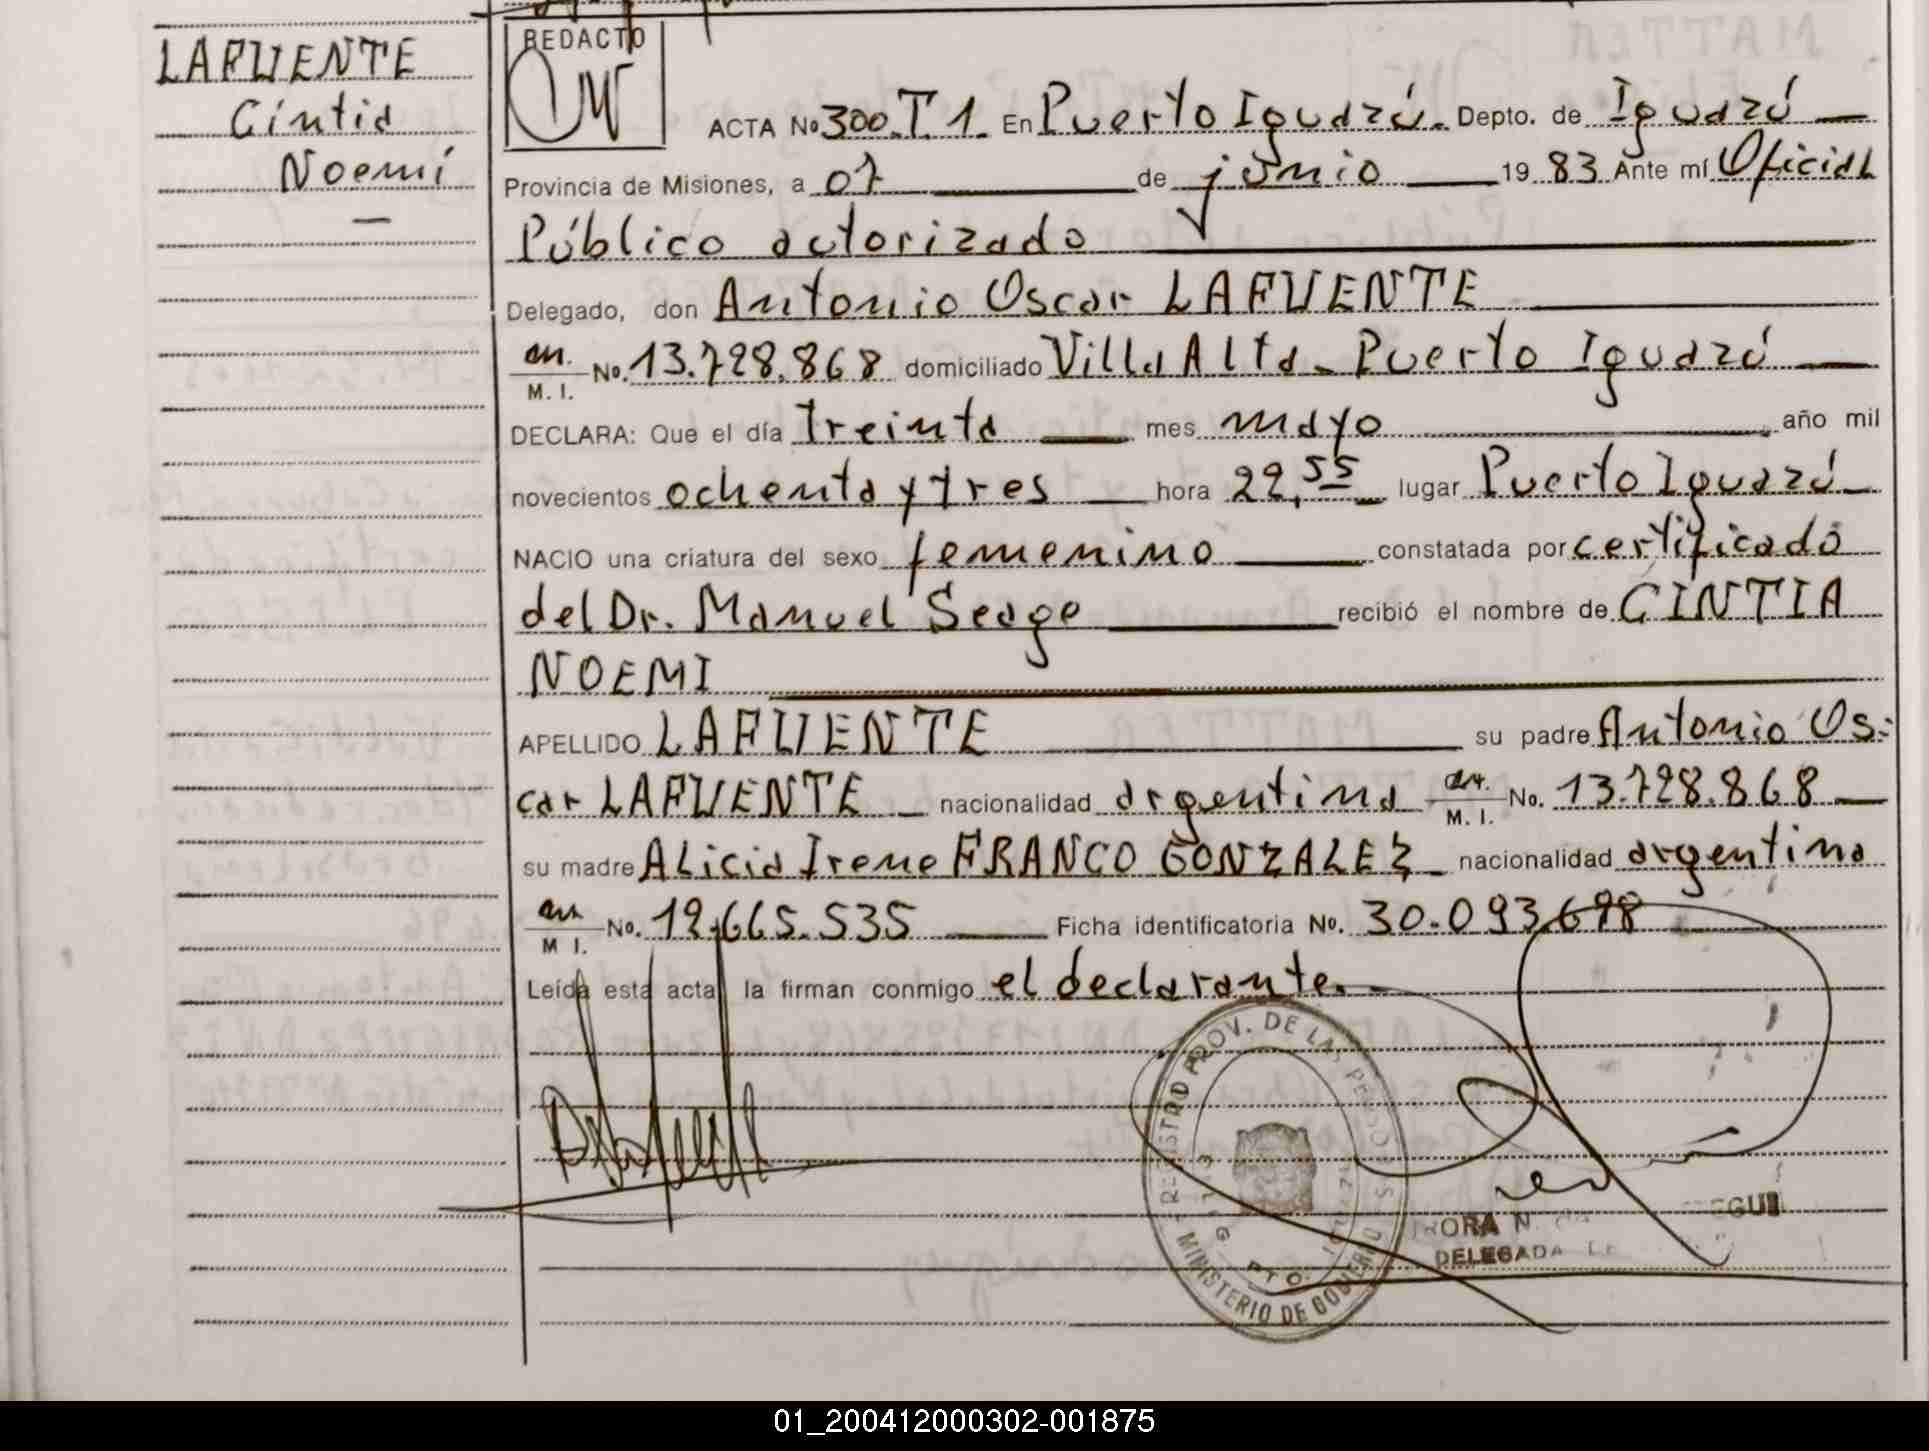 LAFUENTE
Cintia
Noemí
REDACTO
ACTA No 300.T.1. En Puerto Iguazú. Depto. de Iguazú
Provincia de Misiones, a 07 de junio 1983 Ante mí Oficial
Público autorizado
Delegado, don Antonio Oscar LAFUENTE
M. I. No. 13.728.868 domiciliado Villa Alta - Puerto Iguazú
DECLARA: Que el día treinta mes mayo año mil
novecientos ochenta y tres hora 22,55 lugar Puerto Iguazú
NACIO una criatura del sexo femenino constatada por certificado
del Dr. Manuel Seage recibió el nombre de CINTIA
NOEMI
APELLIDO LAFUENTE su padre Antonio Os-
car LAFUENTE nacionalidad argentina M. I. No. 13.728.868
su madre Alicia Irene FRANCO GONZALEZ nacionalidad argentina
M I. No. 12.665.535 Ficha identificatoria No. 30.093.698
Leída esta acta la firman conmigo el declarante.
REGISTRO PROV. DE LAS PERSONAS
MINISTERIO DE GOBIERNO
PTO.
DELEGADA
01_200412000302-001875